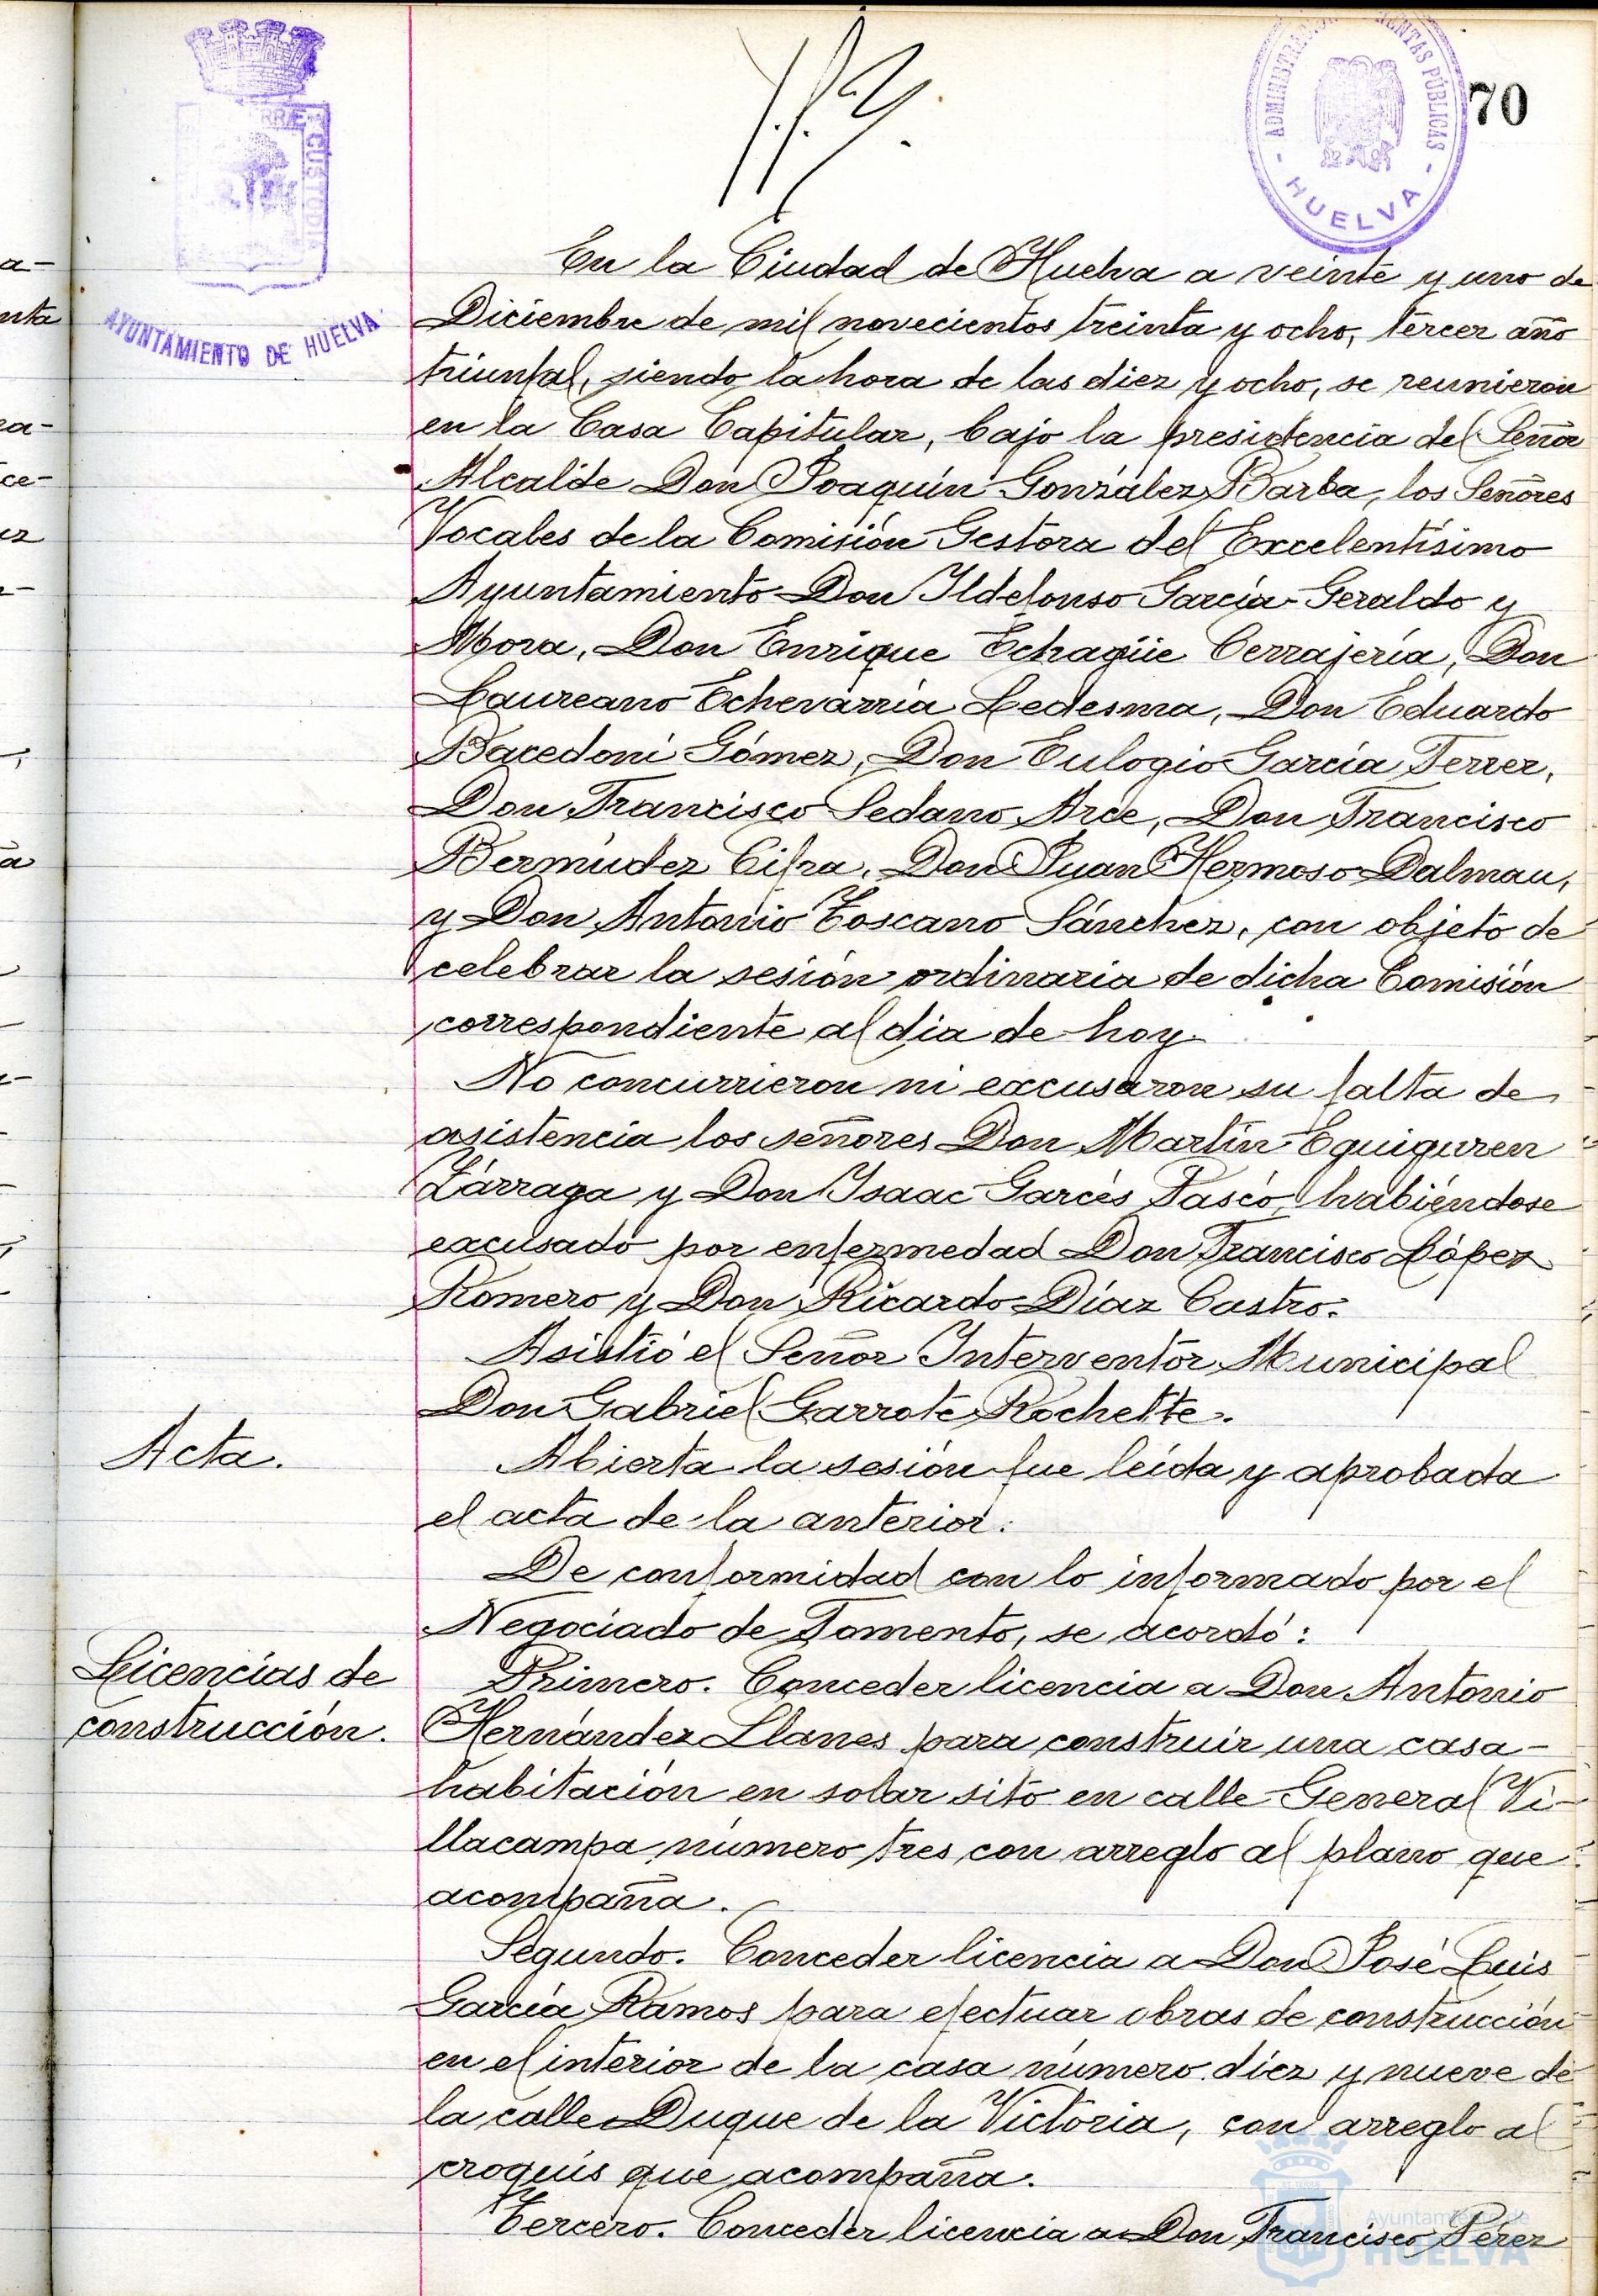 70
TERRÆ CUSTODIA
AYUNTAMIENTO DE HUELVA
ADMINISTRACIÓN RENTAS PÚBLICAS
- HUELVA -
En la Ciudad de Huelva a veinte y uno de
Diciembre de mil novecientos treinta y ocho, tercer año
triunfal, siendo la hora de las diez y ocho, se reunieron
en la Casa Capitular, bajo la presidencia del Señor
Alcalde Don Joaquín González Barba, los Señores
Vocales de la Comisión Gestora del Excelentísimo
Ayuntamiento Don Ildefonso García-Geraldo y
Mora, Don Enrique Echagüe Cerrajería, Don
Laureano Echevarría Ledesma, Don Eduardo
Bacedoni Gómez, Don Eulogio García Ferrer,
Don Francisco Sedano Arce, Don Francisco
Bermúdez Cifra, Don Juan Hermoso Dalmau,
y Don Antonio Toscano Sánchez, con objeto de
celebrar la sesión ordinaria de dicha Comisión
correspondiente al día de hoy.
No concurrieron ni excusaron su falta de
asistencia los señores Don Martín Eguiguren
Zárraga y Don Isaac Garcés Pasco, habiéndose
excusado por enfermedad Don Francisco López
Romero y Don Ricardo Díaz Castro.
Asistió el Señor Interventor Municipal
Don Gabriel Garrote Rochette.
Acta.
Abierta la sesión fue leída y aprobada
el acta de la anterior.
De conformidad con lo informado por el
Negociado de Fomento, se acordó:
Licencias de
construcción.
Primero. Conceder licencia a Don Antonio
Hernández Llanes para construir una casa-
habitación en solar sito en calle General Vi-
llacampa número tres con arreglo al plano que
acompaña.
Segundo. Conceder licencia a Don José Luis
García Ramos para efectuar obras de construcción
en el interior de la casa número diez y nueve de
la calle Duque de la Victoria, con arreglo al
croquis que acompaña.
Tercero. Conceder licencia a Don Francisco Pérez
Ayuntamiento de
HUELVA